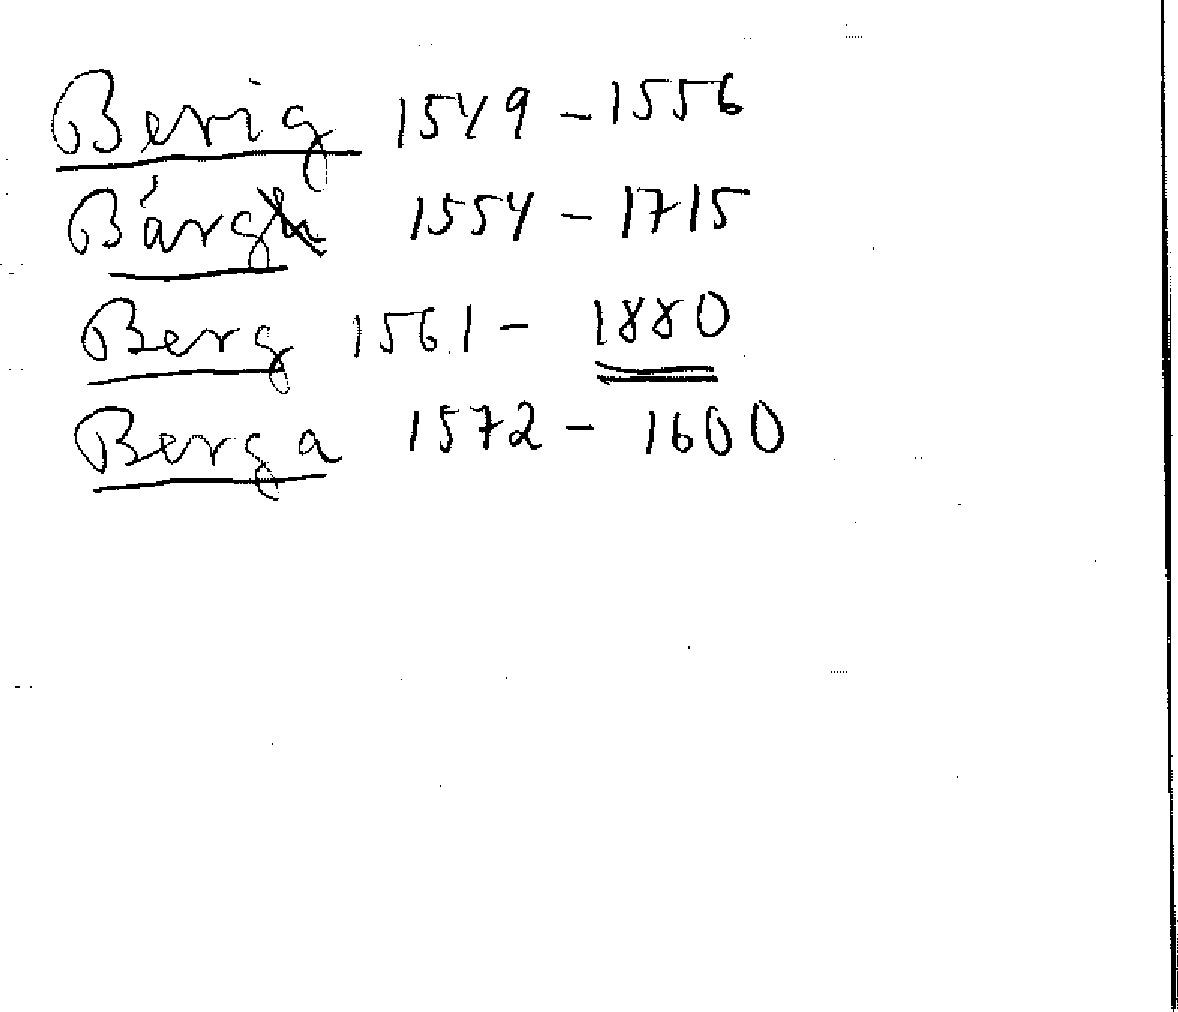 Berig 1549 - 1556
Bárg 1554 - 1715
Berg 1561 - 1880
Berga 1572 - 1600